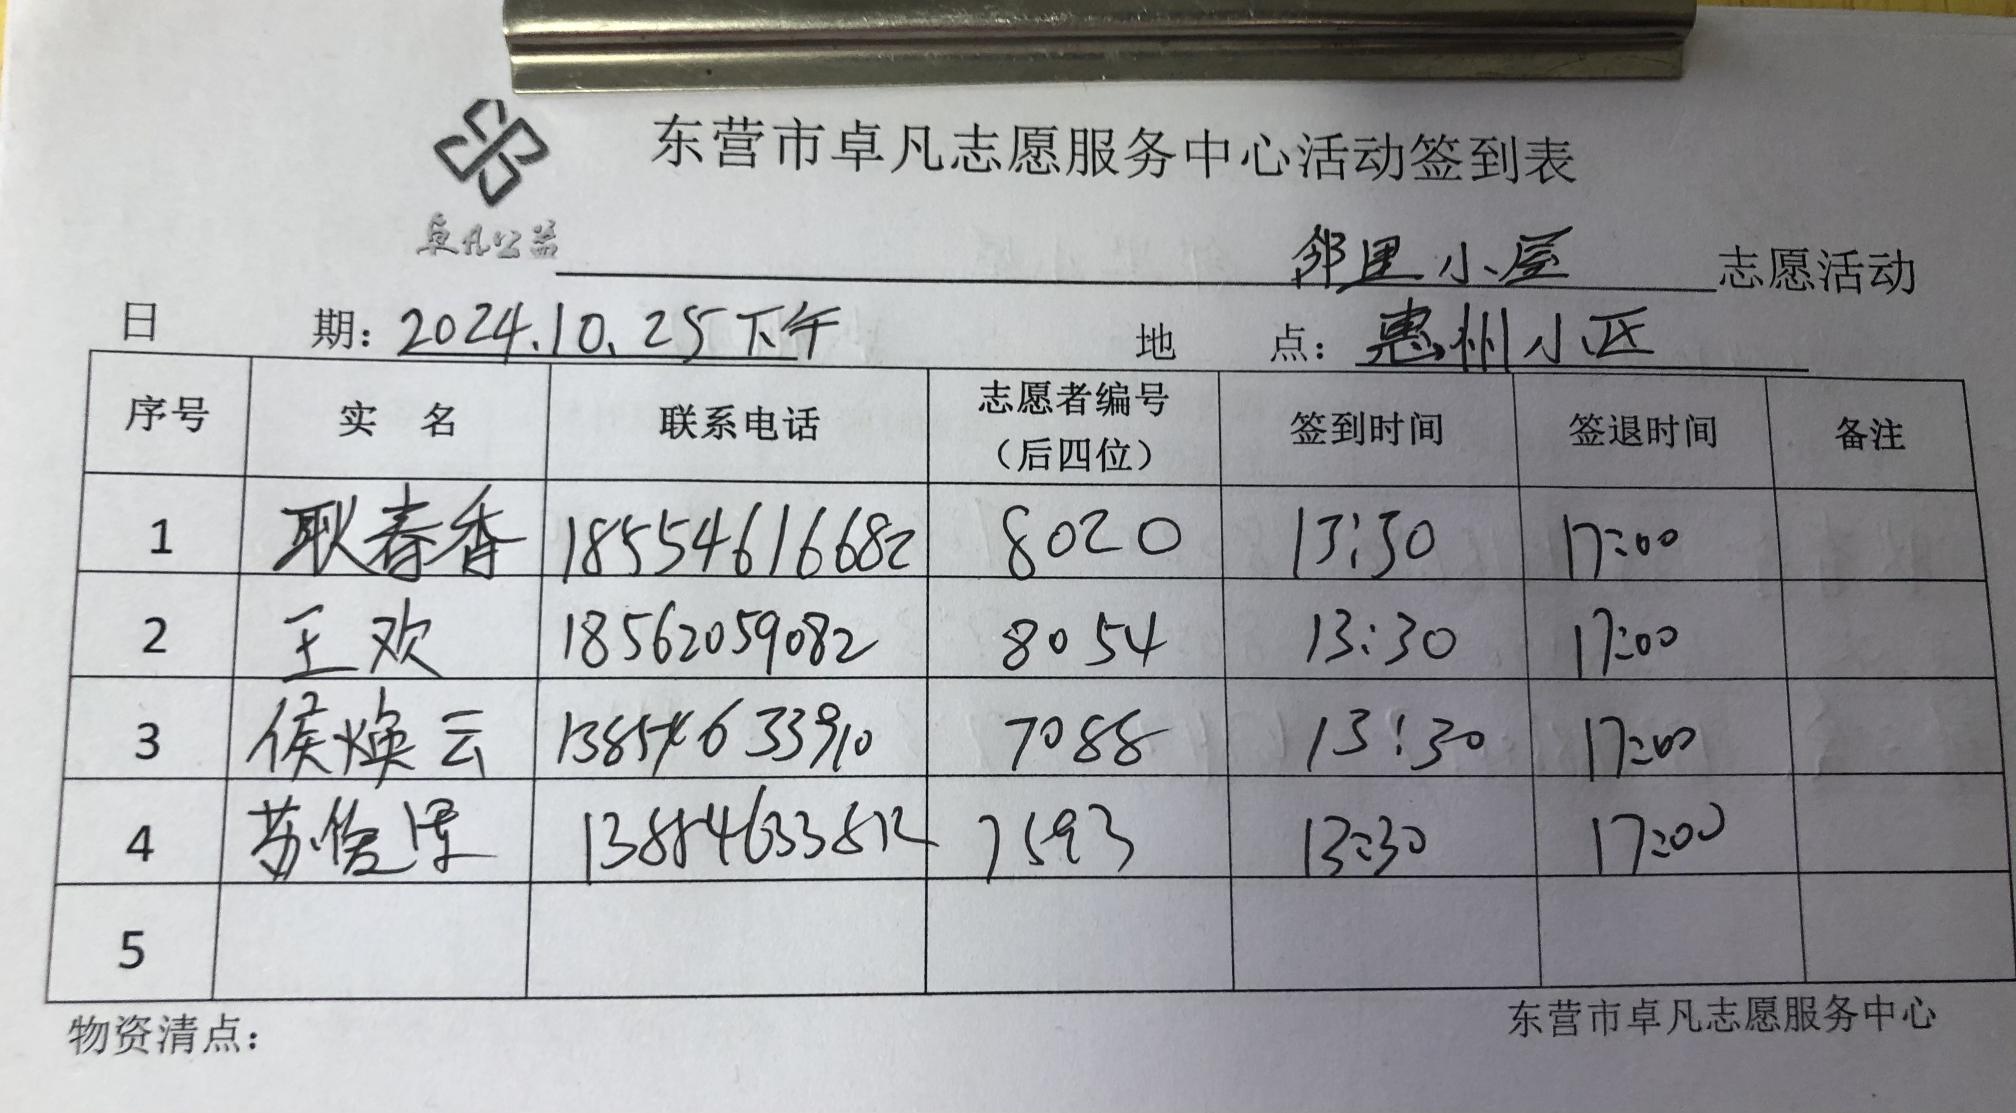 东营市卓凡志愿服务中心活动签到表
卓凡公益
邻里小屋 志愿活动
日 期：2024.10.25下午 地 点：惠州小区
序号 实 名 联系电话 志愿者编号（后四位） 签到时间 签退时间 备注
1 耿春香 18554616682 8020 13:30 17:00
2 王欢 18562059082 8054 13:30 17:00
3 侯焕云 13854633910 7088 13:30 17:00
4 苏俊 13884633812 7593 13:30 17:00
5
物资清点： 东营市卓凡志愿服务中心